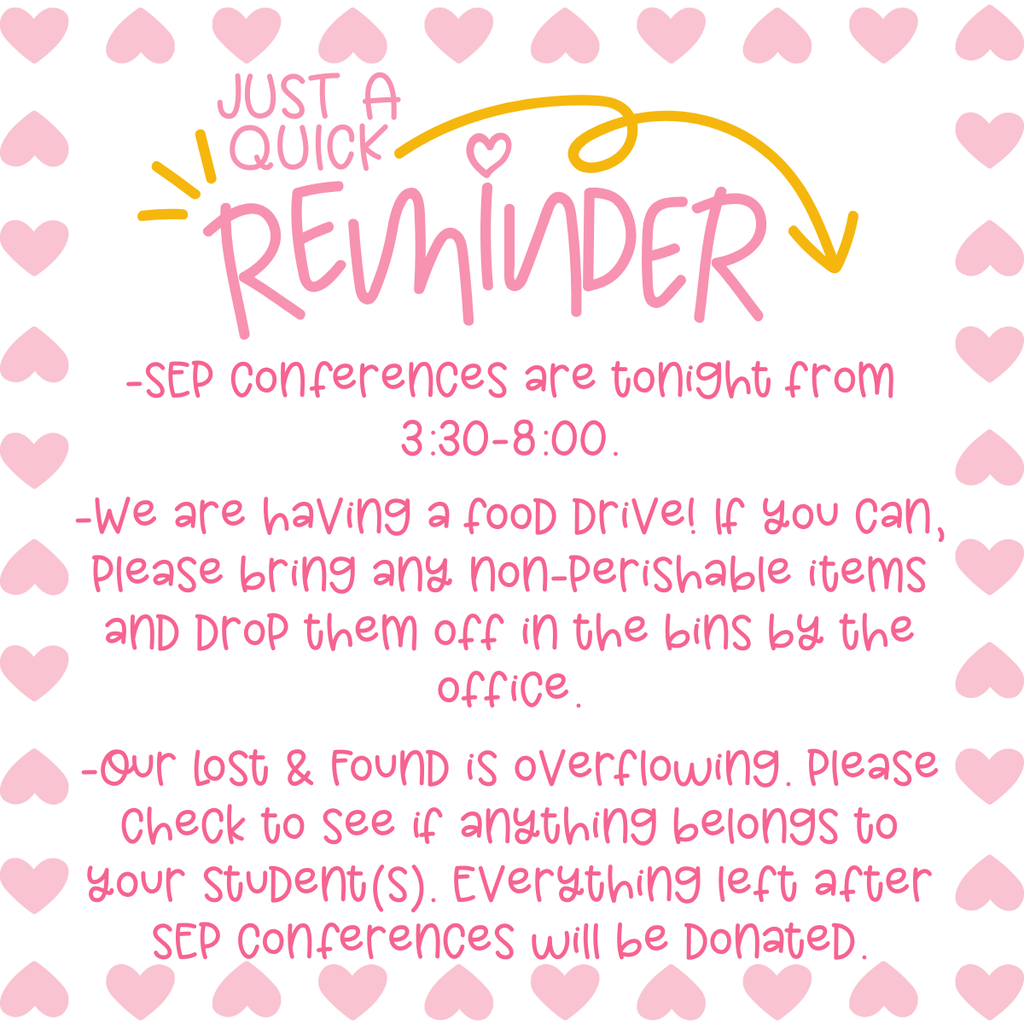 JUST A
QUICK
REMINDER
-SEP Conferences are tonight from
3:30-8:00.
-We are having a food drive! If you can,
please bring any non-perishable items
and drop them off in the bins by the
office.
-Our Lost & Found is overflowing. Please
check to see if anything belongs to
your student(s). Everything left after
SEP Conferences will be donated.